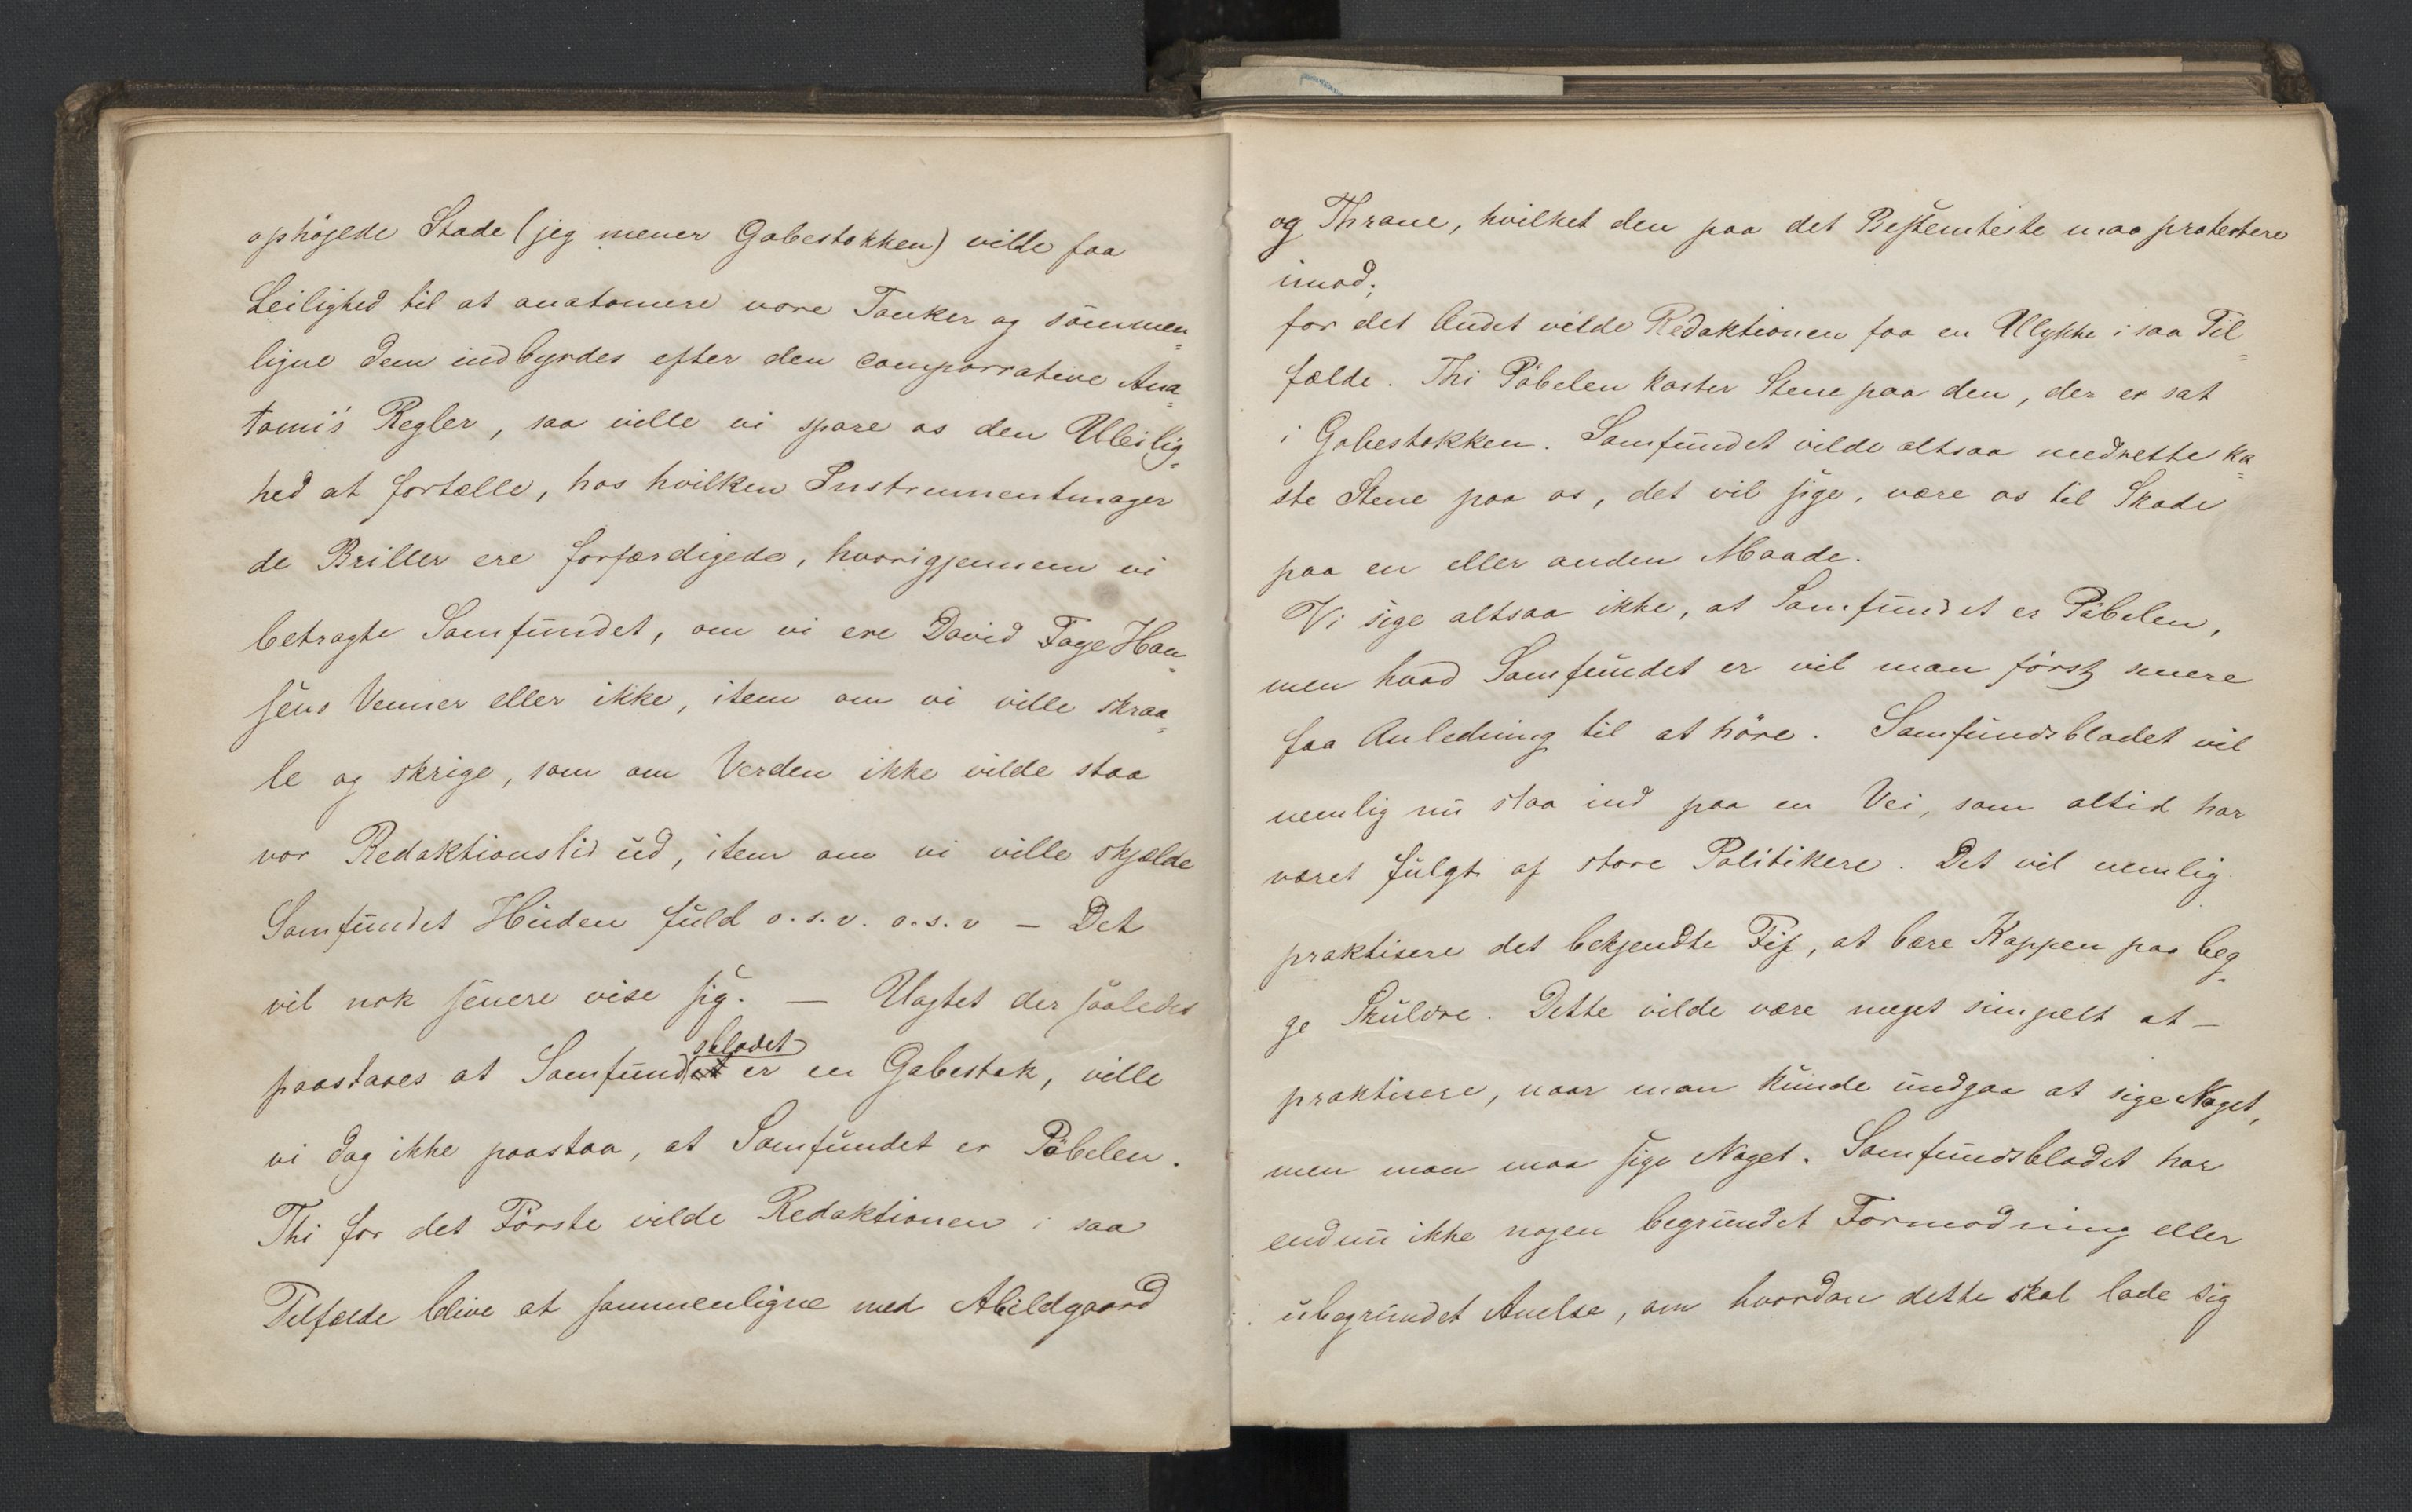 ophöjede Stade (jeg mener Gabestokken) ville faa
Leilighed til at anatomere vore Tanker og sammen=
ligne dem indbyrdes efter den comparrative Ana=
tomi's Regler, saa ville vi spare os den Uleilig=
hed at fortælle, hos hvilken Instrumentmager
de Briller ere forfærdigede, hvorigjennem vi
betragte Samfundet, om vi ere David Tage Han=
sens Venner eller ikke, item om vi ville skraa=
le og skrige, som om Verden ikke vilde staa
vor Redaktionstid ud, item om vi ville skjælde
Samfundet Huden fuld o.s.v. o.s.v — Det
vil nok senere vise sig. — Uagtet der saaledes
sbladet
paastaaes at Samfundet er en Gabestok, ville
vi dog ikke paastaa, at Samfundet er Pöbelen.
Thi for det Förste vilde Redaktionen i saa
Tilfælde blive at sammenligne med Abildgaard
og Thrane, hvilket den paa det Bestemteste maa protestere
imod;
for det Andet vilde Redaktionen faa en Ulykke i saa Til=
fælde. Thi Pöbelen kaster Stene paa den, der er sat
i Gabestokken. Samfundet vilde altsaa medrette ka=
ste Stene paa os, det vil sige, være os til Skade
paa en eller anden Maade.
Vi sige altsaa ikke, at Samfundet er Pöbelen,
men hvad Samfundet er vil man först senere
faa Anledning til at höre. Samfundsbladet vil
nemlig nu slaa ind paa en Vei, som altid har
været fulgt af store Politikere. Det vil nemlig
praktisere det bekjendte Fif, at bære Kappen paa beg=
ge Skuldre. Dette vilde være meget simpelt at —
praktisere, naar man kunde undgaa at sige Noget,
men man maa sige Noget. Samfundsbladet har
endnu ikke nogen begrundet Formodning eller
ubegrundet Anelse, om hvordan dette skal lade sig